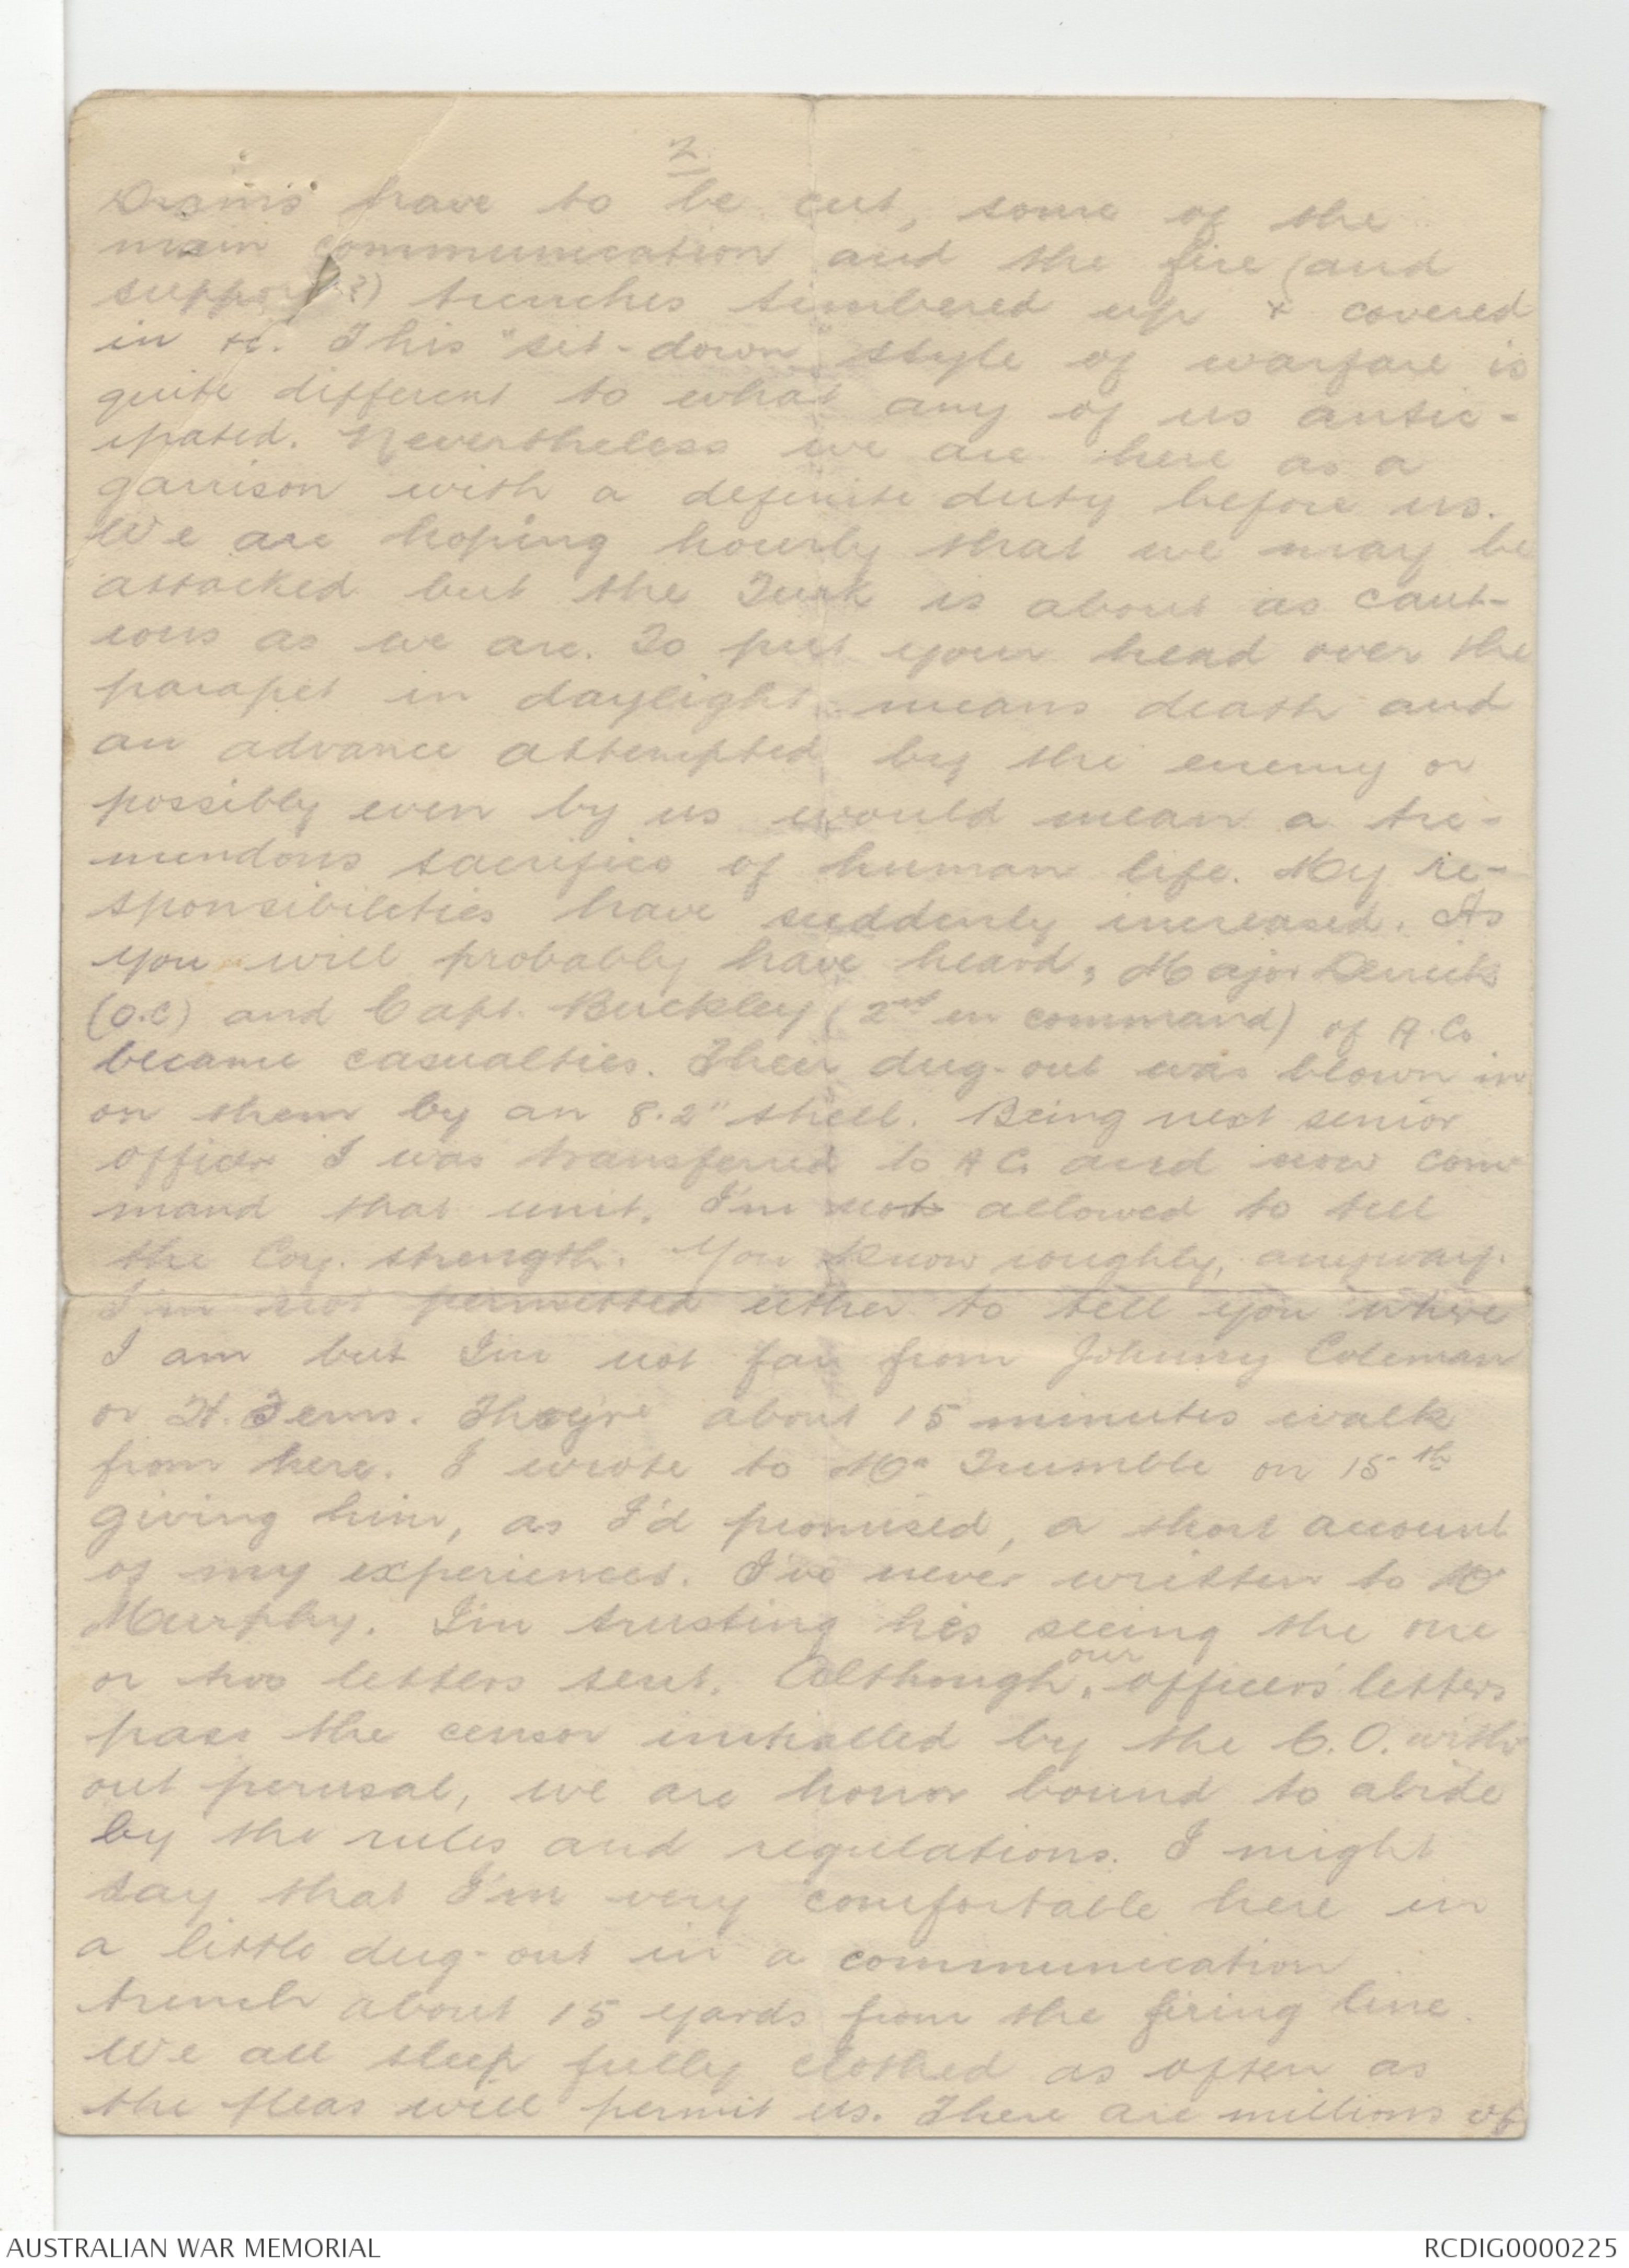 2
Drains have to be cut, some of the
main communication and the fire (and
support?) trenches timbered up & covered
in &c. This "sit-down" style of warfare is
quite different to what any of us antic-
ipated. Nevertheless we are here as a
garrison with a definite duty before us.
We are hoping hourly that we may be
attacked but the Turk is about as caut-
ious as we are. To put your head over the
parapet in daylight means death and
an advance attempted by the enemy or
possibly even by us would mean a tre-
mendous sacrifice of human life. My re-
sponsibilities have suddenly increased. As
you will probably have heard, Major
(O.C) and Capt. Buckley (2nd in command) of A. Co
became casualties. Their dug-out was blown in
on them by an 8.2" shell. Being next senior
officer I was transferred to A Co and now com
mand that unit. I'm not allowed to tell
the Coy. strength. You know roughly, anyway.
I'm not permitted either to tell you where
I am but I'm not far from Johnny Coleman
or H. . They're about 15 minutes walk
from here. I wrote to Mr Trumble on 15th
giving him, as I'd promised, a short account
of my experiences. I've never written to Mr
Murphy. I'm trusting he's seeing the one
or two letters sent. Although our officers' letters
pass the censor initialled by the C.O. with
out perusal, we are honor bound to abide
by the rules and regulations. I might
say that I'm very comfortable here in
a little dug-out in a communication
trench about 15 yards from the firing line.
We all sleep fully clothed as often as
the fleas will permit us. There are millions of
AUSTRALIAN WAR MEMORIAL
RCDIG0000225